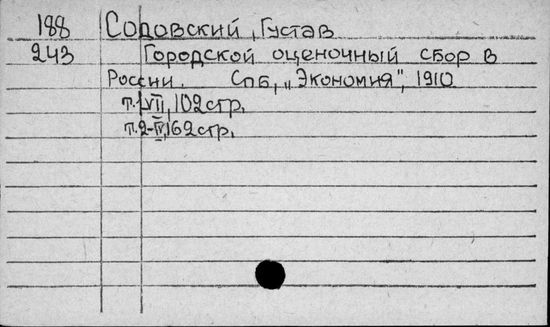 188 Содовский, Густав
243 Городской оценочный сбор в
России. СПБ, „Экономия", 1910
т.1-VII, 102 стр.
т.2-IV, 162 стр.